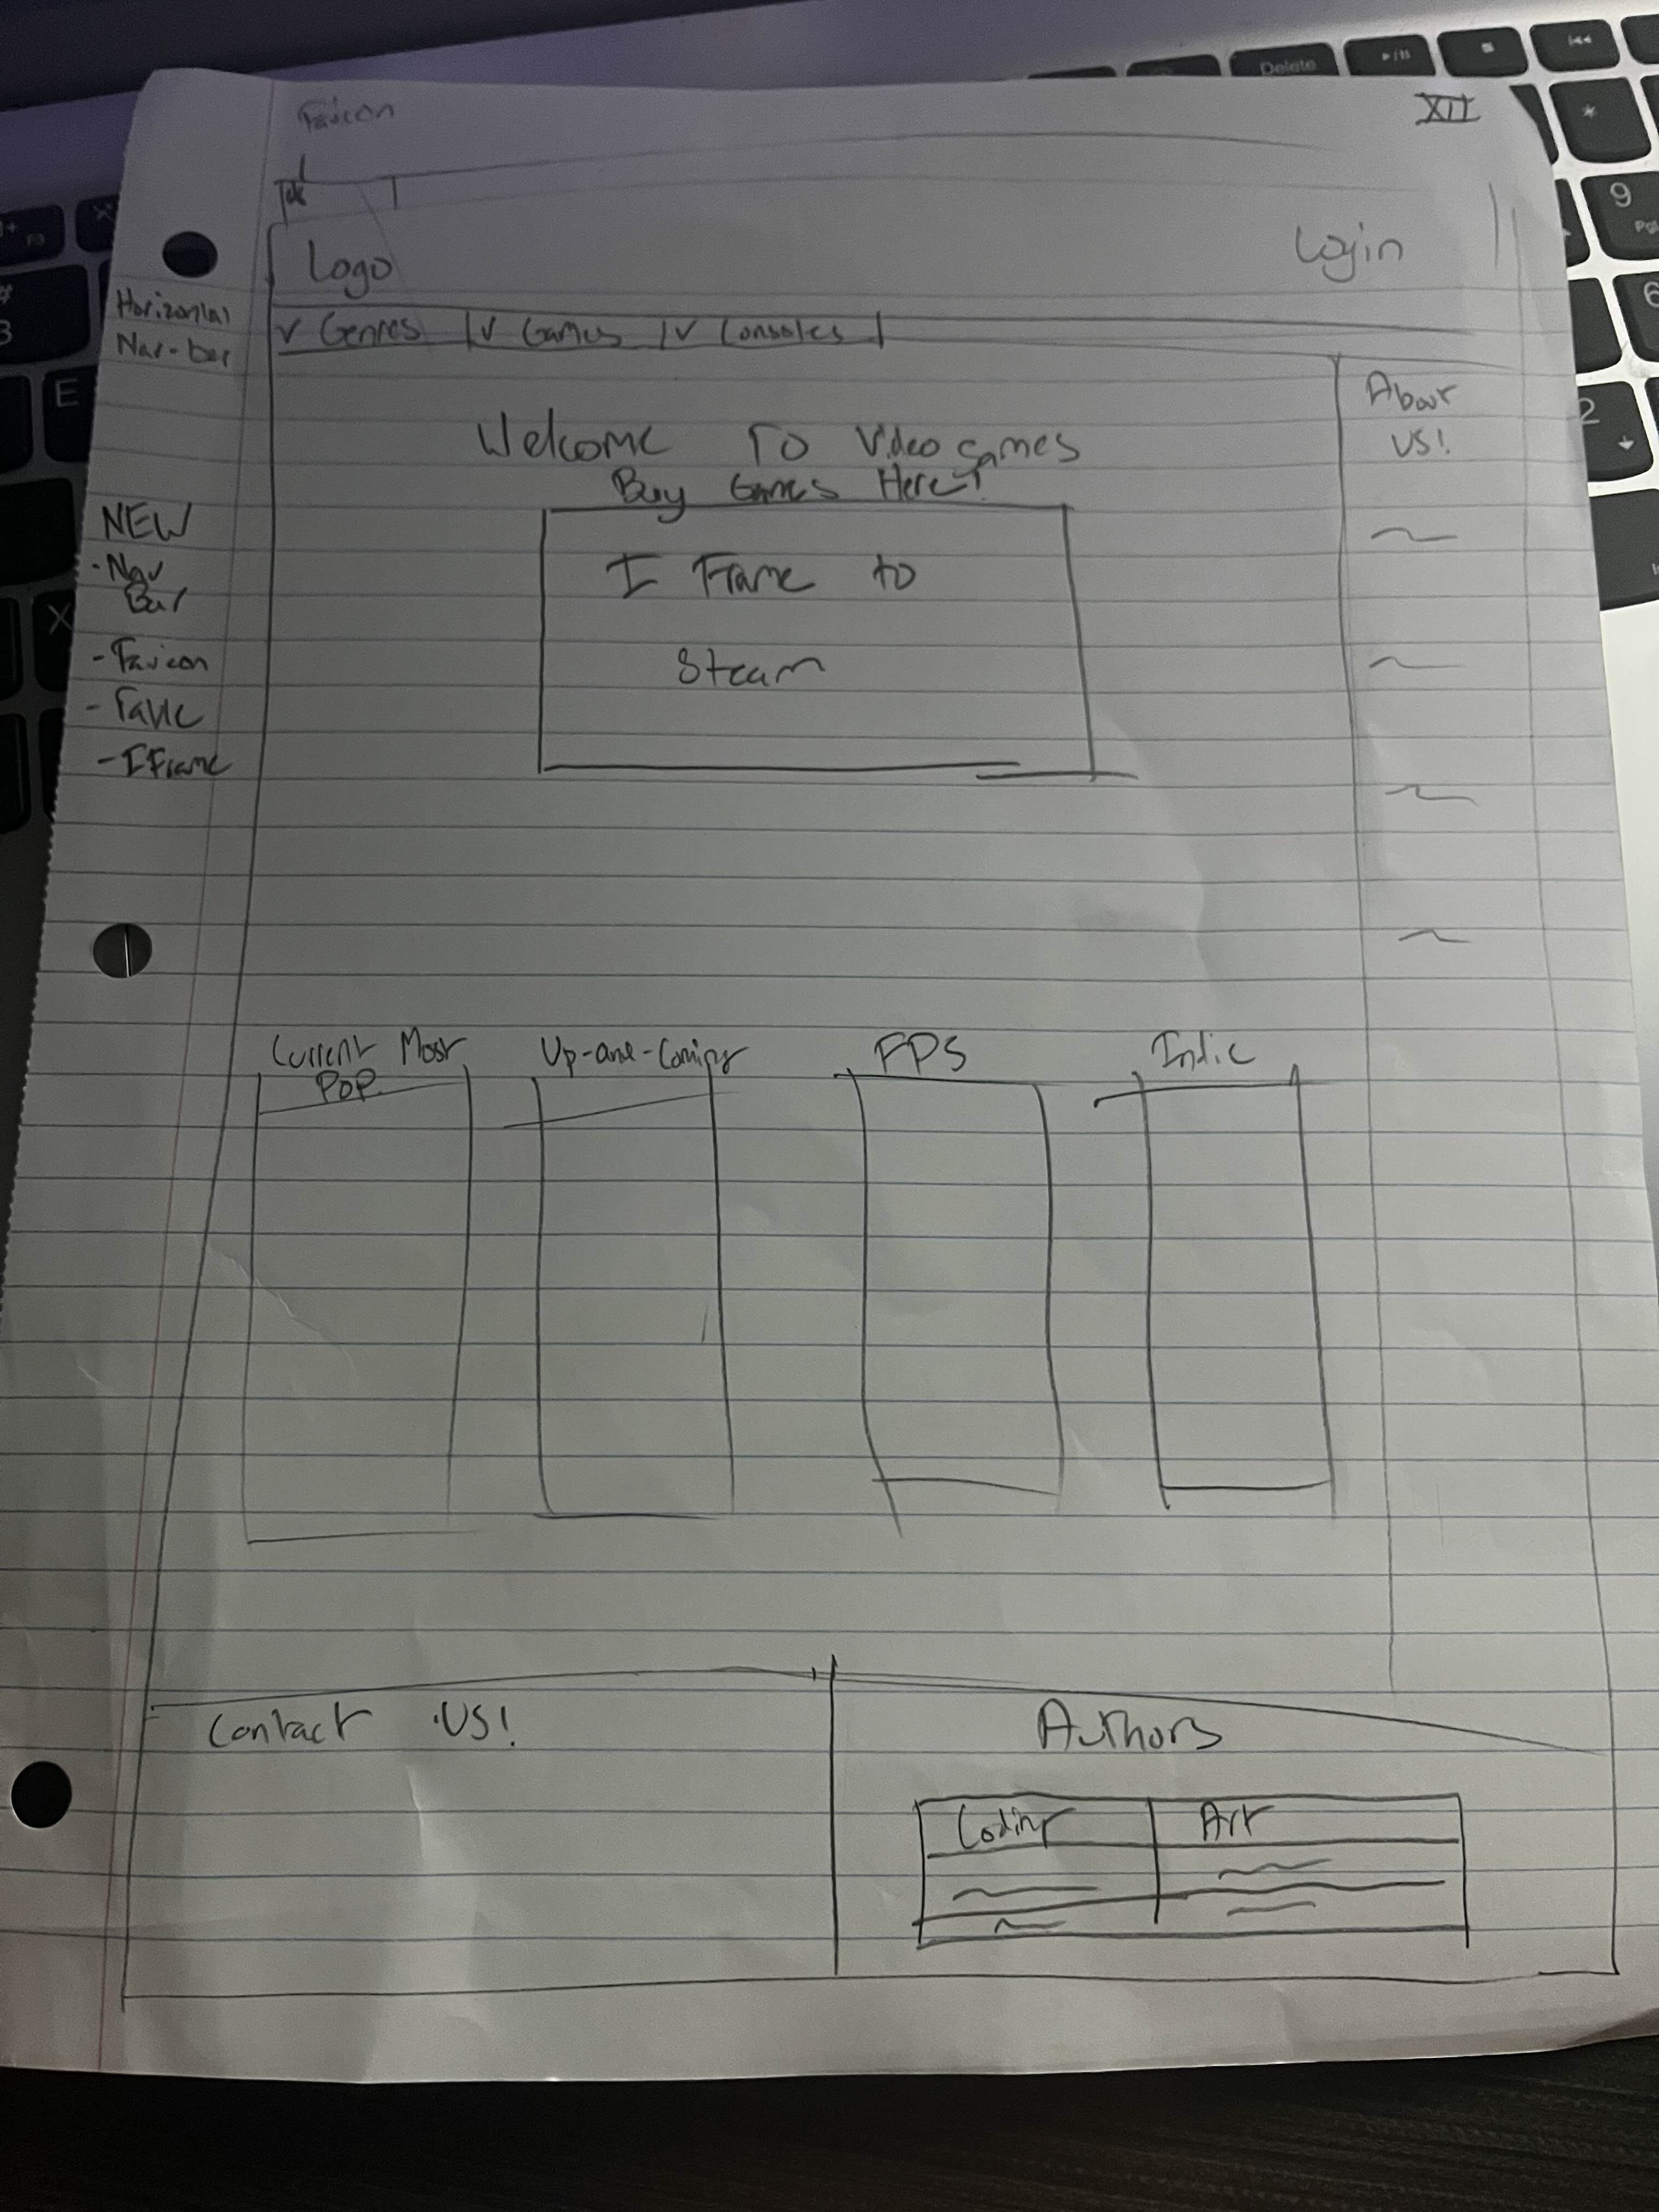 Favicon
XII
Tab
Logo
Login
Horizontal
Nav-bar
v Genres | v Games | v Consoles |
About
US!
Welcome To Videogames
Buy Games Here!
NEW
- Nav
Bar
- Favicon
- Table
- IFrame
I Frame to
Steam
Current Most
POP.
Up-and-Coming
FPS
Indie
Contact US!
Authors
Coding
Art
Delete
9
6
2
3
E
X
*